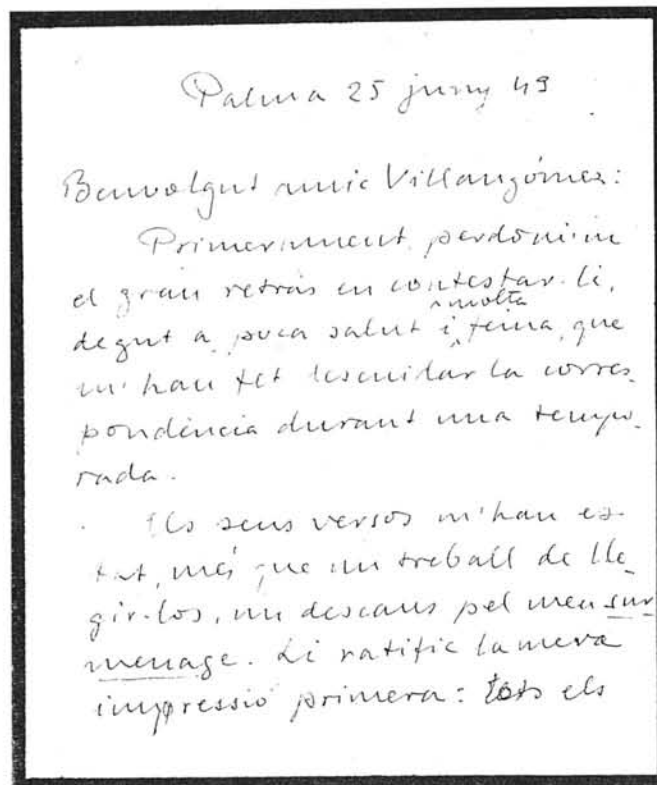 Palma 25 juny 49
Benvolgut amic Villangómez:
Primerament, perdoni'm
el gran retràs en contestar-li,
degut a poca salut i molta feina, que
m'han fet descuidar la corres-
pondència durant una tempo-
rada.
Els seus versos m'han es-
tat, més que un treball de lle-
gir-los, un descans pel meu sur-
menage. Li ratific la meva
impressió primera: tots els